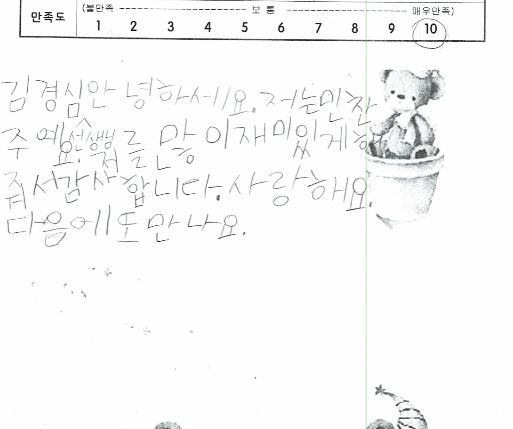 만족도
(불만족 보통 매우만족)
1 2 3 4 5 6 7 8 9 10
김경심안녕하세요. 저는민찬
주예요. 선생님 저를 만이재미있게해
줘서감사합니다. 사랑해요.
다음에또만나요.